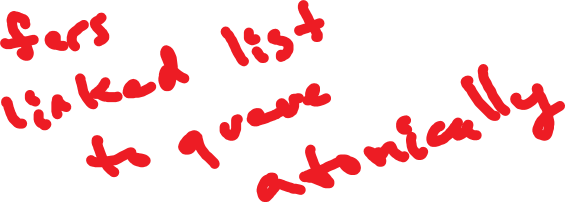 fers
linked list
to queue
atomically